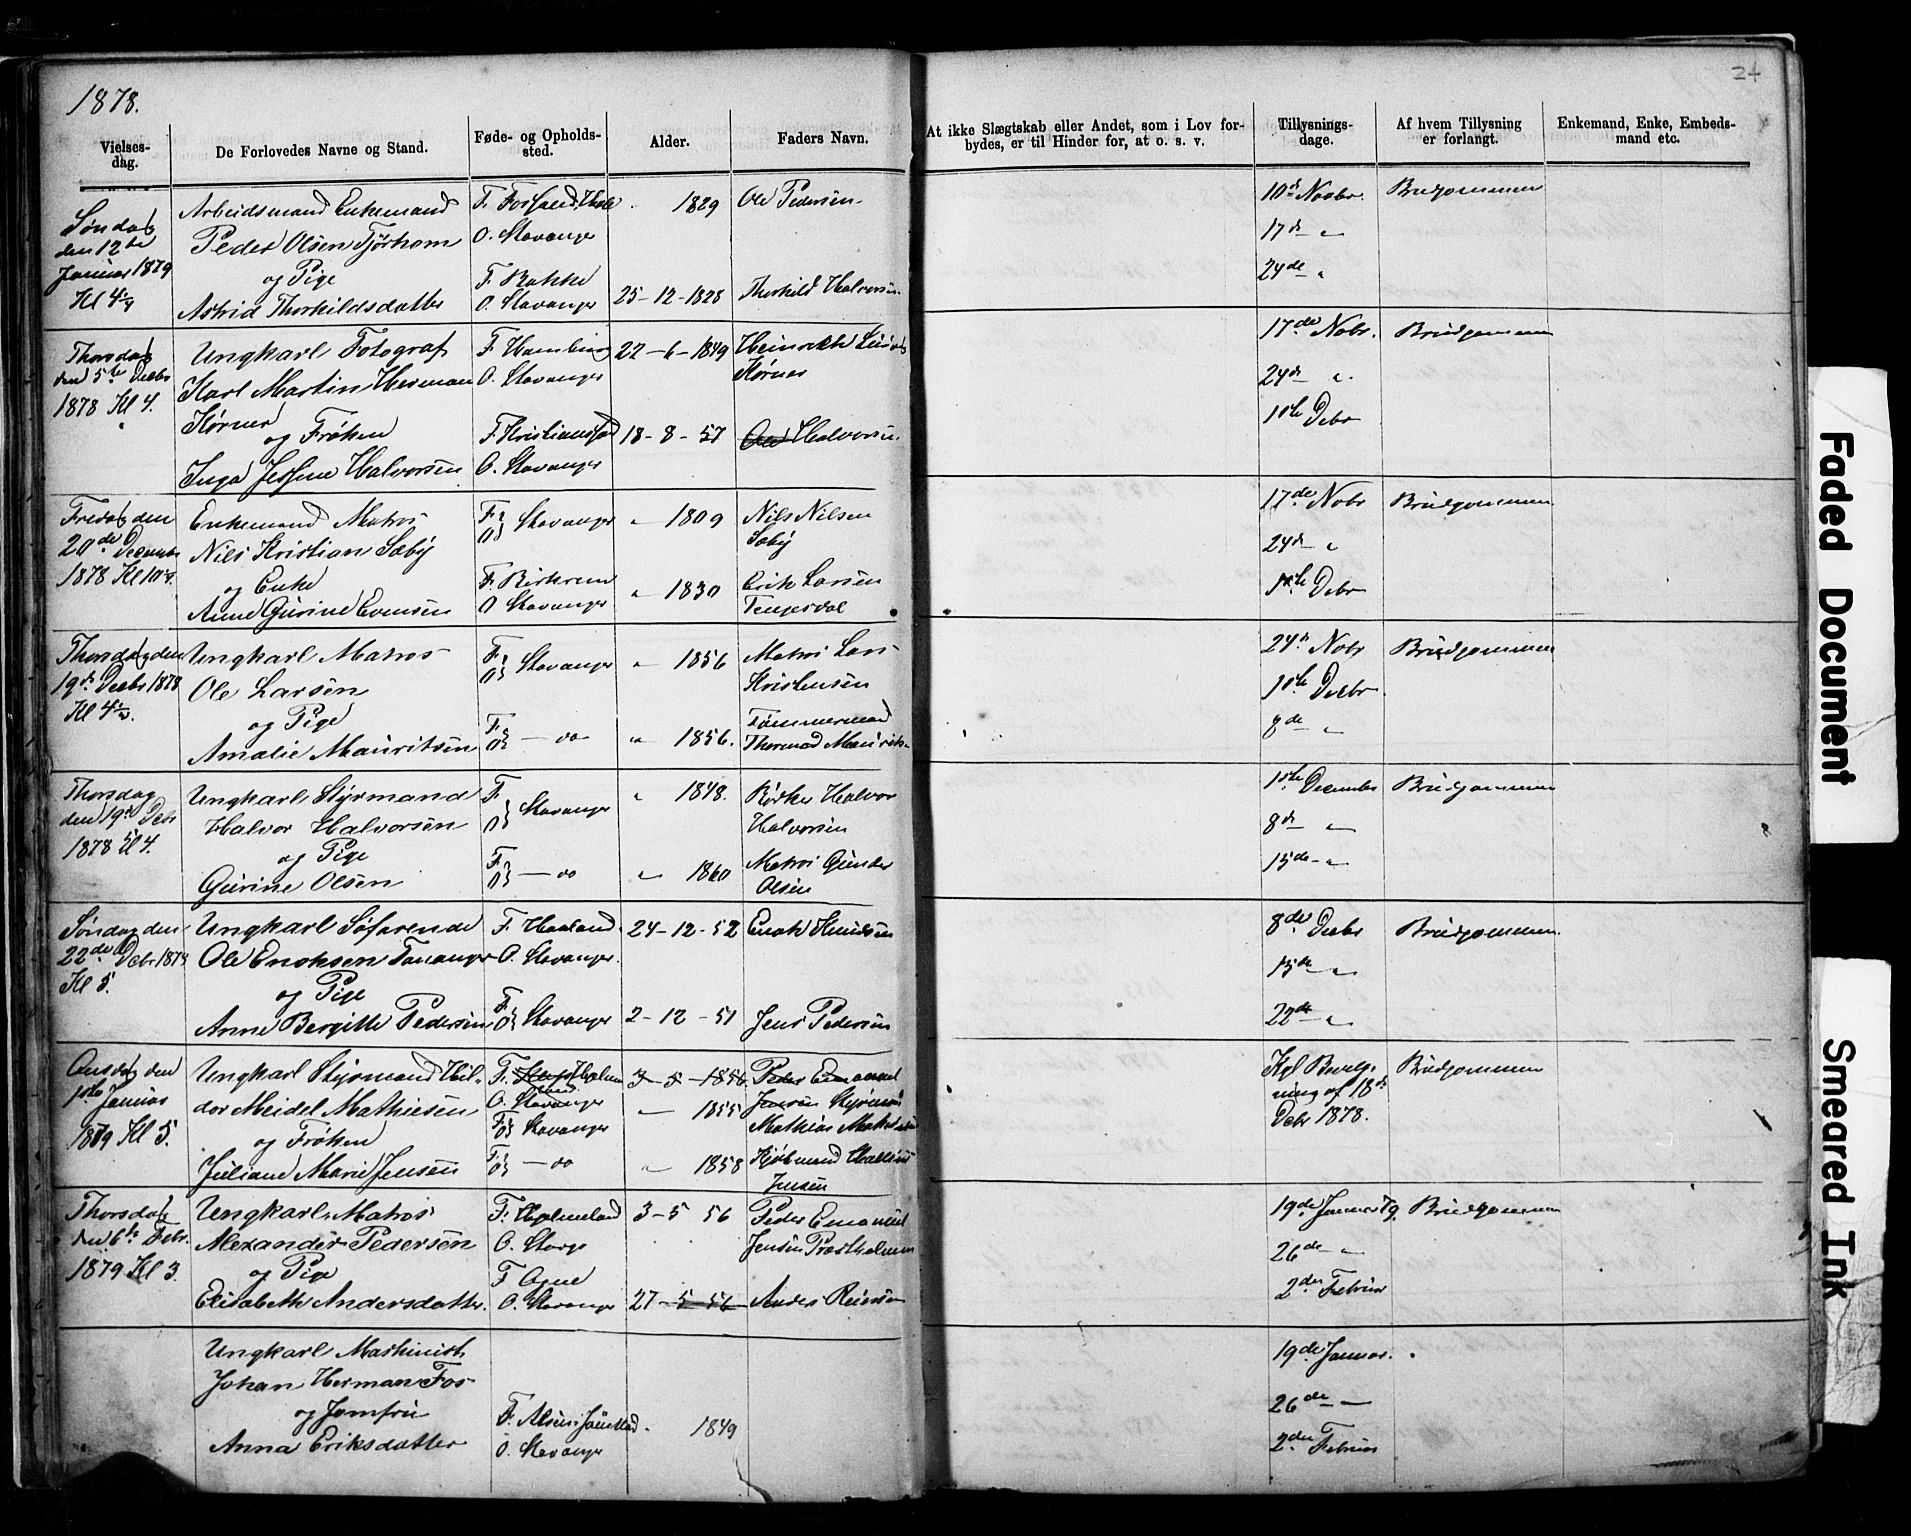 1878.
24
Vielses-
dag.
De Forlovedes Navne og Stand.
Føde- og Opholds-
sted.
Alder.
Faders Navn.
At ikke Slægtskab eller Andet, som i Lov for-
bydes, er til Hinder for, at o. s. v.
Tillysnings-
dage.
Af hvem Tillysning
er forlangt.
Enkemand, Enke, Embeds-
mand etc.
Søndag
den 12te
Januar 1879
Kl 4½
Arbeidsmand Enkemand
Peder Olsen Tjørhom
og Pige
Astrid Thorkildsdatter
F. Forsand
O. Stavanger
F. Bakke
O. Stavanger
1829
25-12-1828
Ole Pedersen
Thorkild Halvorsen
10de Novbr.
17de "
24de "
Brudgommen
Thorsdag
den 5te Decbr
1878 Kl 4.
Ungkarl Fotograf
Karl Martin Herman
Kørner
og Frøken
Inga Jessine Halvorsen
F. Hamburg
O. Stavanger
F. Kristianssand
O. Stavanger
22-6-1849
18-8-57
Heinrich
Kørner
Ole Halvorsen
17de Nobr.
24de "
1ste Debr
Brudgommen
Fredag den
20de Decembr
1878 Kl 10½.
Enkemand Matros
Nils Kristian Søby
og Enke
Anne Gurine Evensen
F. O. Stavanger
F. Birkrem
O Stavanger
" 1809
" 1830
Nils Nilsen
Søby
Erik Larsen
Tengesdal
17de Nobr
24de "
1ste Debr
Brudgommen
Thorsdag den
19de Decbr 1878
Kl 4½.
Ungkarl Matros
Ole Larsen
og Pige
Amalie Mauritsen
F. O. Stavanger
F. O. — do
" 1856
" 1856.
Matros Lars
Kristensen
Tømmermand
24de Nobr
1ste Decbr
8de "
Brudgommen
Thorsdag
den 19de Debr
1878 Kl 4.
Ungkarl Styrmand
Halvor Halvorsen
og Pige
Gurine Olsen
F. O. Stavanger
F. O. — do
" 1848.
" 1860
Bødker Halvor
Halvorsen
Matros Gunder
Olsen
1ste December
8de "
15de "
Brudgommen
Søndag den
22de Debr 1878
Kl 5.
Ungkarl Søfarende
Ole Enoksen Tananger
og Pige
Anne Bergitte Pedersen
F. Haaland
O. Stavanger.
F. O. Stavanger
24-12-52
2-12-51
Enok Knudsen
Jens Pedersen
8de Decbr
15de "
22de "
Brudgommen
Onsdag den
1ste Januar
1879 Kl 5.
Ungkarl Styrmand Hil-
dor Meidel Mathiesen
og Frøken
Juliane Marie Jensen
O. Stavanger
F. O. Stavanger
F. O. — do
3-5-1856.
" 1855
" 1858
Peder Emanuel
Jensen Styrmand
Mathias
Kjøbmand
Jensen
Kgl Bevilg-
ning af 18de
Debr 1878.
Brudgommen
Thorsdag
den 6te Febr.
1879 Kl 3.
Ungkarl Matros
Alexander Pedersen
og Pige
Elisabeth Andersdatter.
F. Hjelmeland
O.
F Ogne
O. Stavanger
3-5 56
27-5-56
Peder Emanuel
Jensen Præstholmen
Anders Reiersen
19de Januar 79.
26de "
2den Februar
Brudgommen
Ungkarl Maskinist
Johan Herman Fos
og Jomfru
Anna Eriksdatter
O. Stavanger
1849
19de Januar.
26de —
2den Februar
Faded Document
Smeared Ink